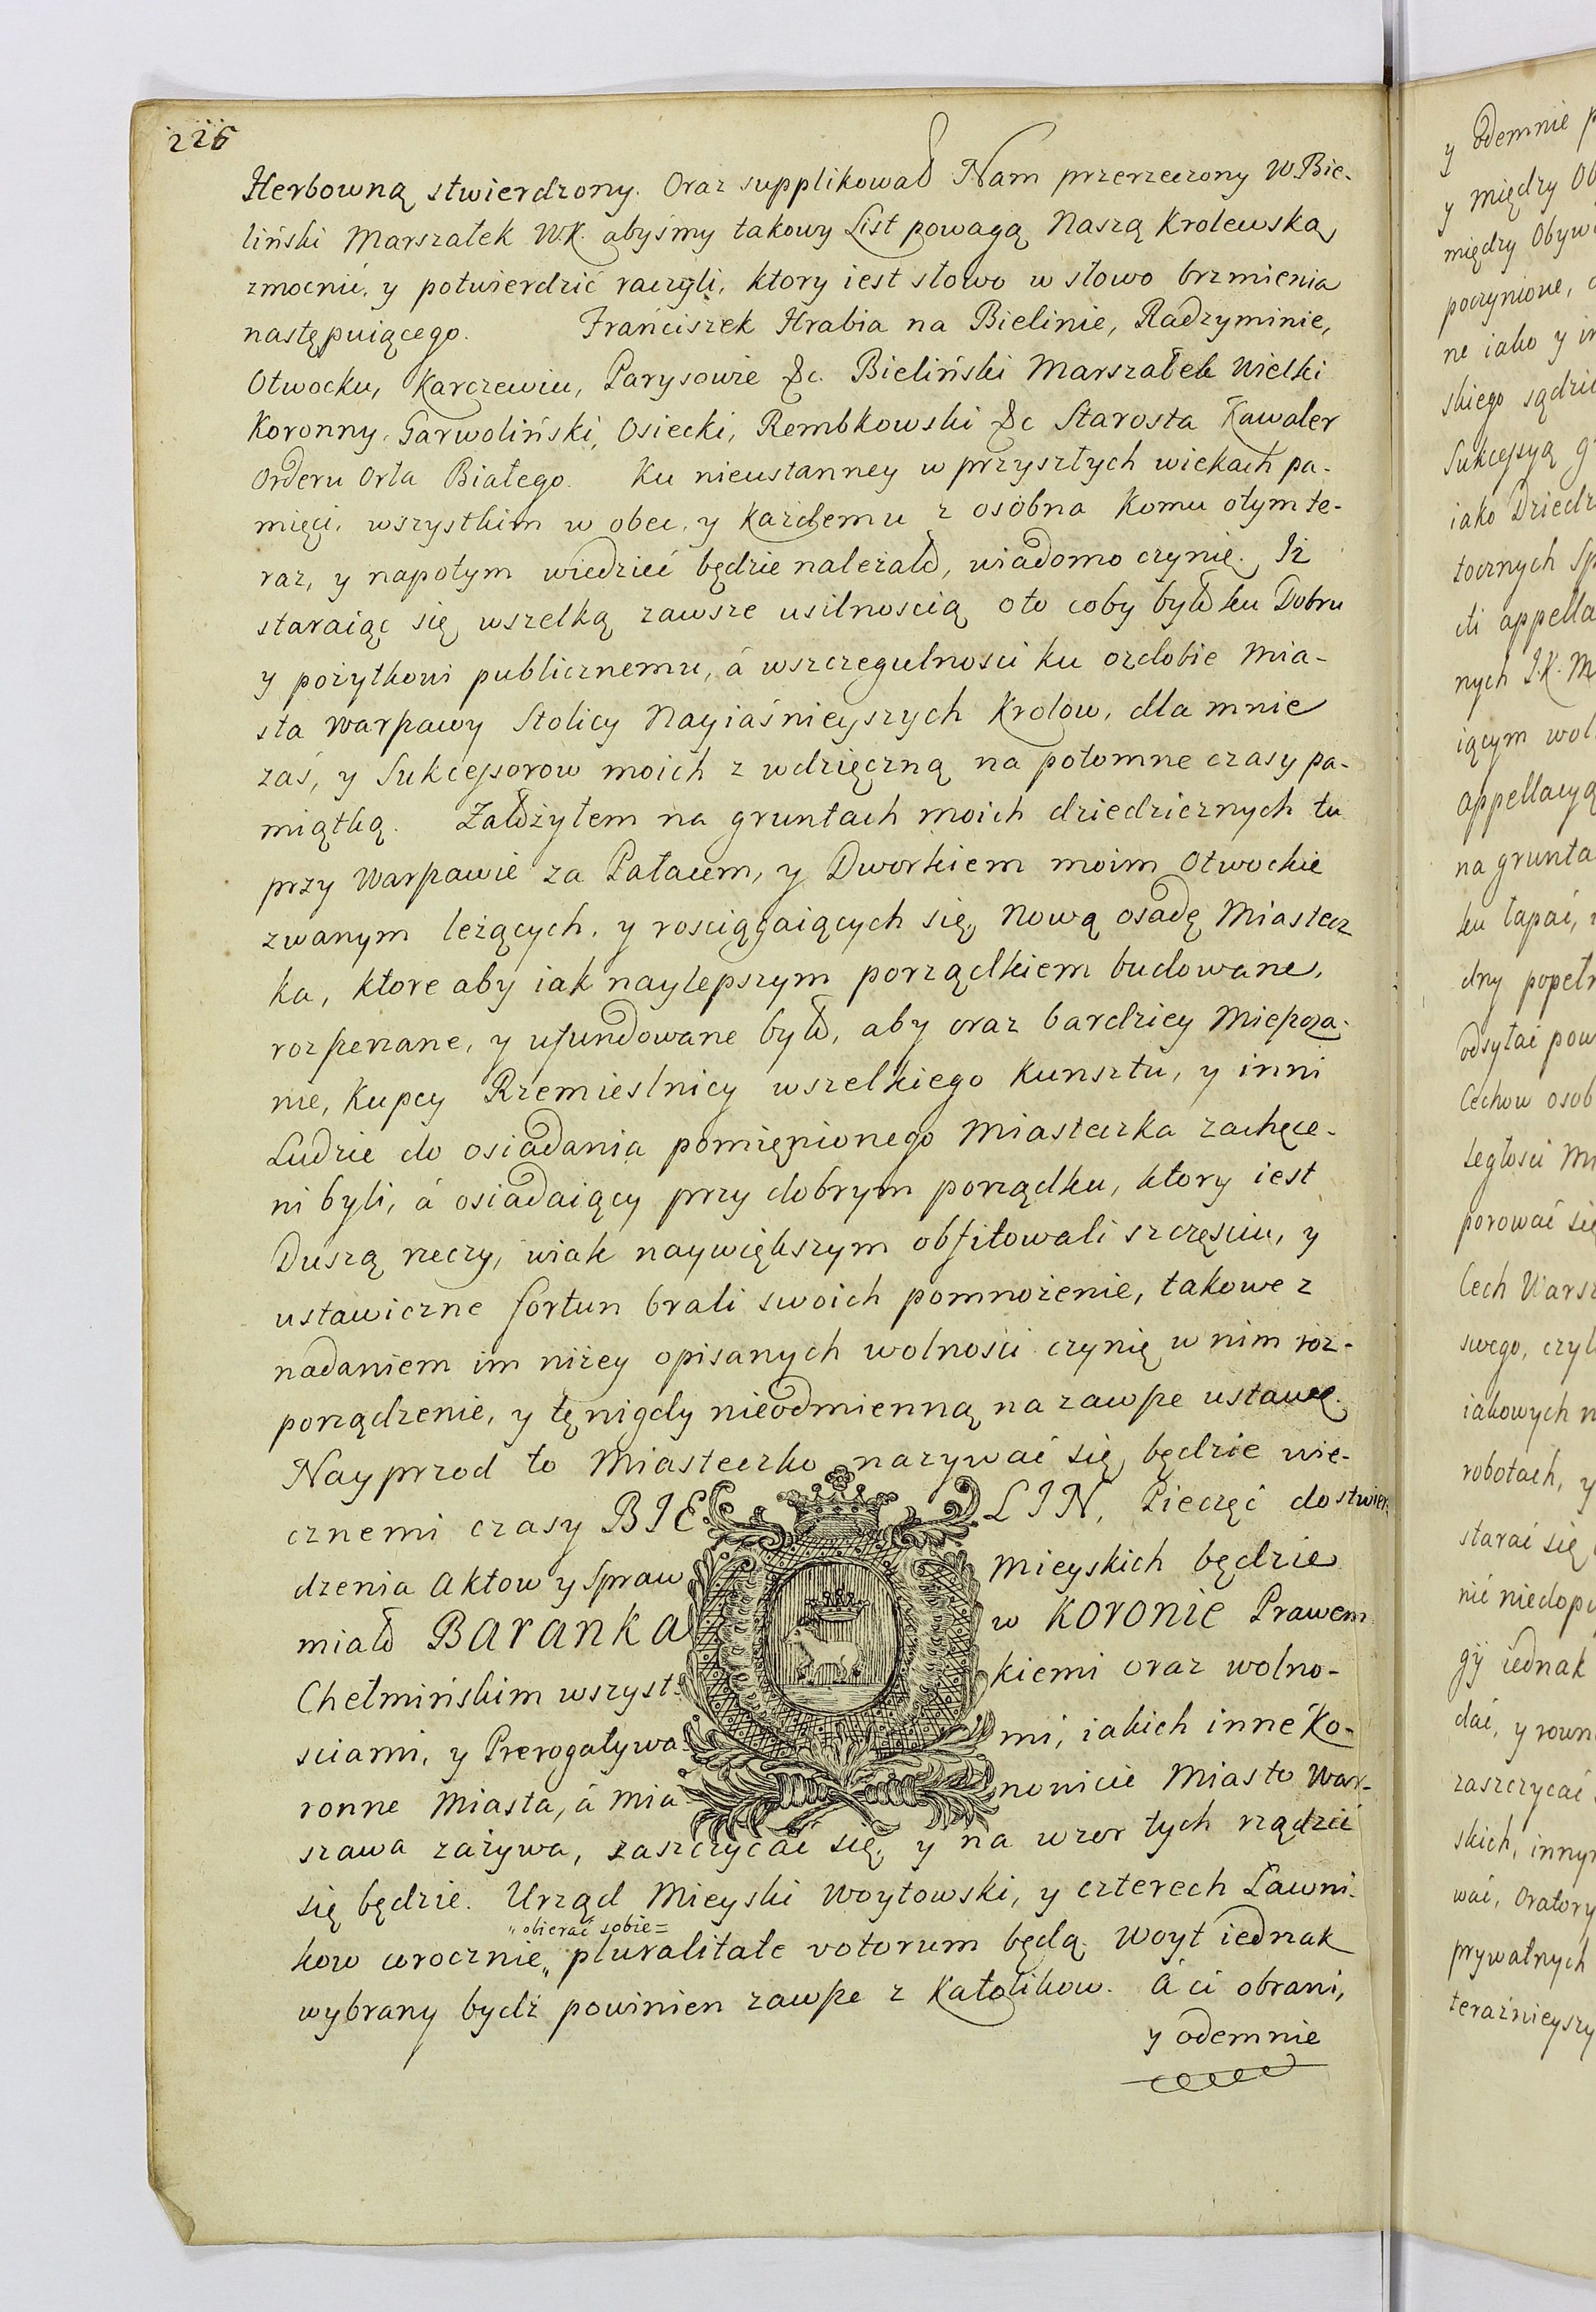 226
Herbowną stwierdzony. Oraz supplikował Nam przerzeczony W. Bie-
liński Marszałek W.K. abyśmy takowy List powagą Naszą Krolewską
zmocnić, y potwierdzić raczyli, ktory iest słowo w słowo brzmienia
następuiącego. Franciszek Hrabia na Bielinie, Radzyminie,
Otwocku, Karczewiu, Parysowie &c. Bieliński Marszałek Wielki
Koronny, Garwoliński, Osiecki, Rembkowski &c Starosta Kawaler
Orderu Orła Białego. Ku nieustanney w przyszłych wiekach pa-
mięci, wszystkim w obec, y każdemu z osobna komu otym te-
raz, y napotym wiedzieć będzie należało, wiadomo czynię. Iż
staraiąc się wszelką zawsze usilnoscią oto coby było ku Dobru
y pożytkowi publicznemu, á wszczegulnosci ku ozdobie Mia-
sta Warszawy Stolicy Nayiaśnieyszych Krolow, dla mnie
zaś, y Sukcessorow moich z wdzięczną na potomne czasy pa-
miątką. Założyłem na gruntach moich dziedzicznych tu
przy Warszawie za Pałacem, y Dworkiem moim Otwockie
zwanym leżących, y rosciągaiących się, Nową osadę Miastecz
ka, ktore aby iak naylepszym porządkiem budowane,
rosperzane, y ufundowane było, aby oraz bardziey Mieszcza-
nie, Kupcy Rzemieslnicy wszelkiego Kunsztu, y inni
Ludzie do osiadania pomienionego Miasteczka zachęce-
ni byli, á osiadaiący przy dobrym porządku, ktory iest
Duszą rzeczy, wiak naywiększym obfitowali szczęsciu, y
ustawiczne fortun brali swoich pomnożenie, takowe z
nadaniem im niżey opisanych wolności czynię w nim roz-
porządzenie, y tę nigdy nieodmienną na zawsze ustawę.
Nayprzod to Miasteczko nazywać się będzie wie-
cznemi czasy BIELIN, Pieczęć do stwier-
dzenia Aktow y Spraw Mieyskich będzie
miało Baranka w Koronie Prawem
Chełmińskim wszystkiemi oraz wolno-
sciami, y Prerogatywami, iakich inne Ko-
ronne Miasta, á mianowicie Miasto War-
szawa zażywa, zaszczycać się, y na wzor tych rządzić
się będzie. Urząd Mieyski Woytowski, y czterech Ławni-
„obierać sobie=
kow corocznie„ pluralitate votorum będą. Woyt iednak
wybrany bydź powinien zawsze z Katolikow. á ci obrani,
y odemnie
y odemnie
y między
między
poczynione,
ne iako y
skiego
Sukcessyą
iako
tocznych
appella
nych J.K.
iącym
appellacyą
na grunta
ku łapać,
dny
odsyłać
Cechow
ległosci
porować
Cech
swego,
iakowych
robotach, y
starać się
nić
iednak
dać, y
zaszczycać
skich,
wać,
prywatnych